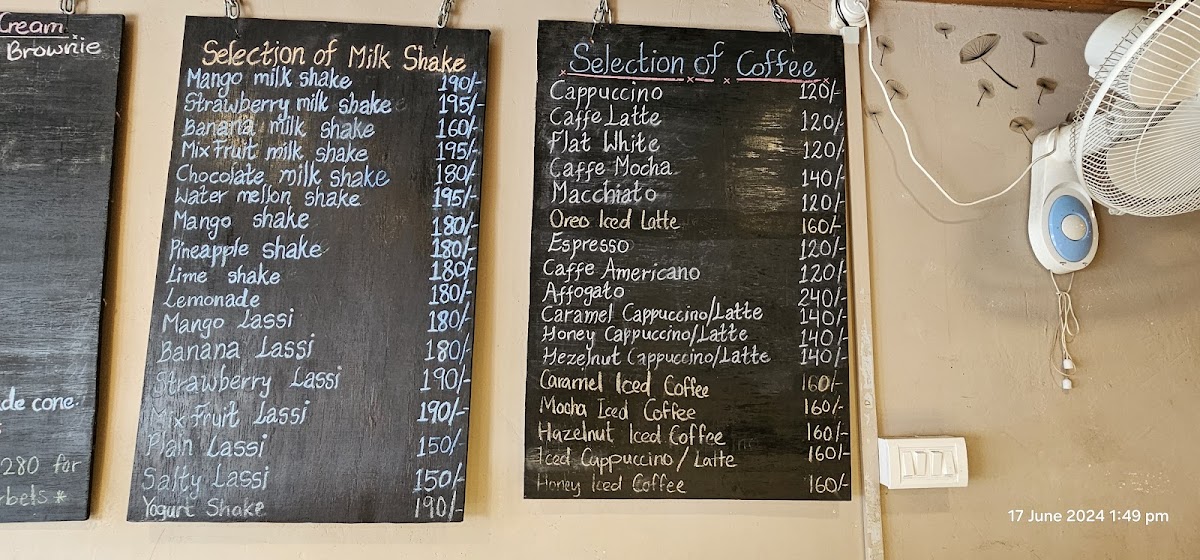 Cream
Brownie
de cone.
280 for
rbels*
Selection of Milk Shake
Mango milk shake 190/-
Strawberry milk shake 195/-
Banana milk shake 160/-
Mix Fruit milk shake 195/-
Chocolate milk shake 180/-
Water mellon shake 195/-
Mango shake 180/-
Pineapple shake 180/-
Lime shake 180/-
Lemonade 180/-
Mango Lassi 180/-
Banana Lassi 180/-
Strawberry Lassi 190/-
Mix Fruit Lassi 190/-
Plain Lassi 150/-
Salty Lassi 150/-
Yogurt Shake 190/-
Selection of Coffee
Cappuccino 120/-
Caffe Latte 120/-
Flat White 120/-
Caffe Mocha 140/-
Macchiato 120/-
Oreo Iced Latte 160/-
Espresso 120/-
Caffe Americano 120/-
Affogato 240/-
Caramel Cappuccino/Latte 140/-
Honey Cappuccino/Latte 140/-
Hezelnut Cappuccino/Latte 140/-
Caramel Iced Coffee 160/-
Mocha Iced Coffee 160/-
Hazelnut Iced Coffee 160/-
Iced Cappuccino / Latte 160/-
Honey Iced Coffee 160/-
17 June 2024 1:49 pm